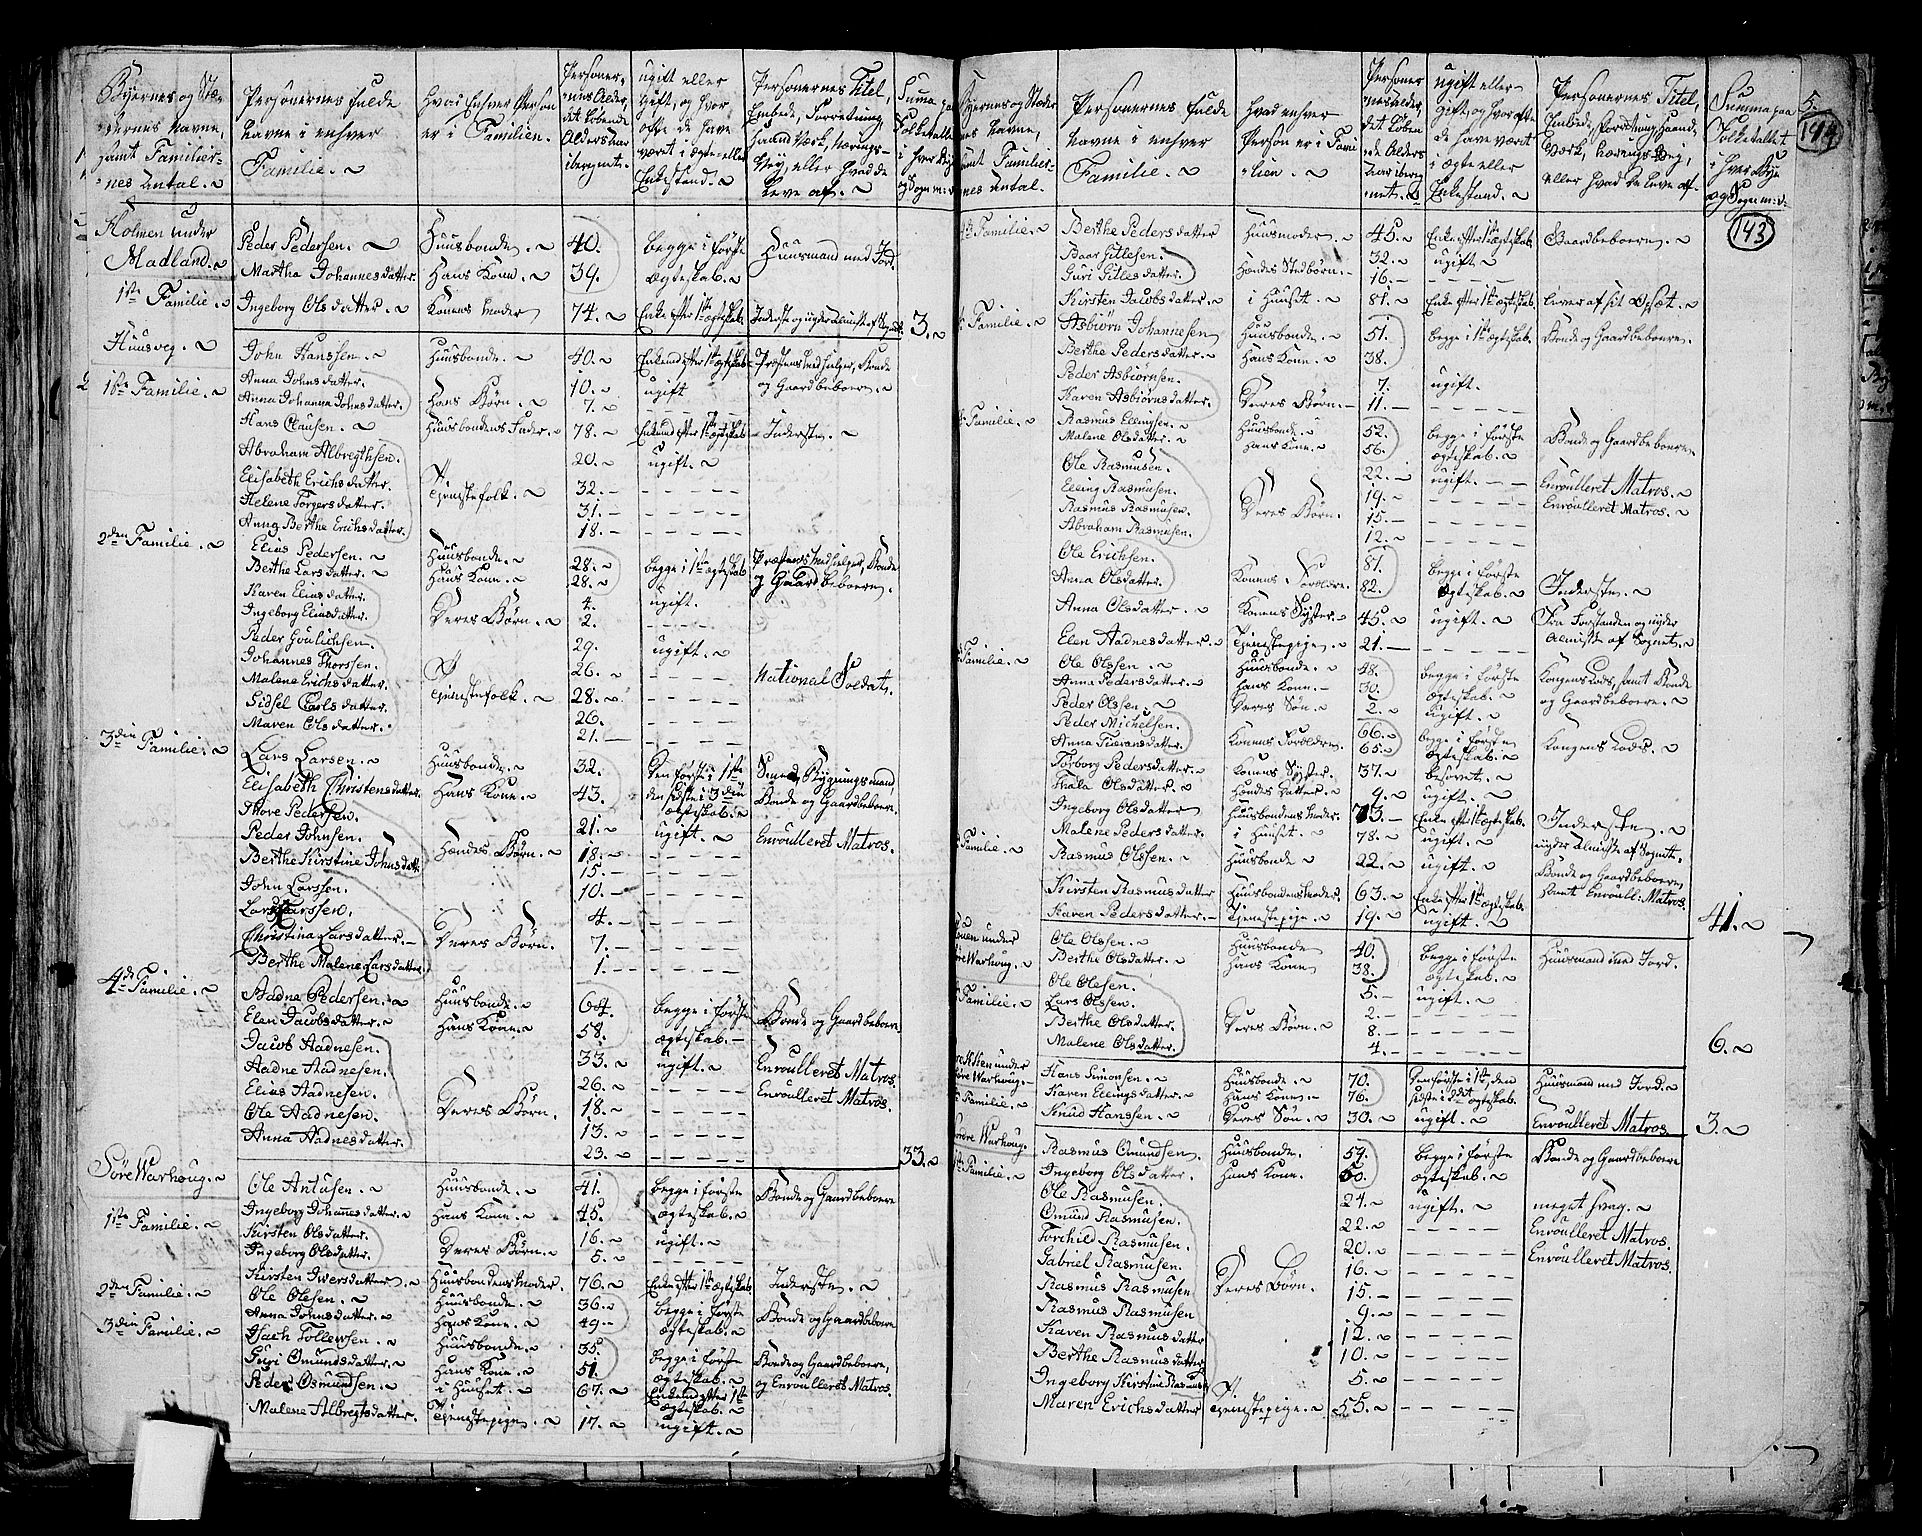 Byernes og Stæ-
dernes Navne,
samt Familier-
nes Antal.
Personernes fulde
Navne i enhver
Familie.
Hvad Enhver Person
er i Familien.
Personer-
nes Alder,
det løbende
Alders Aar
iberegnet.
ugift eller
Gift, og hvor
ofte de have
været i Ægte eller
Enkestand.
Personernes Titel,
Embede, Forretning,
Haand Værk, Nærings-
Vej, eller hvad de
leve af.
Suma paa
Folketallet
i hver Bye
og Sogn m: v:
Holmen under
Madland.
1ste Familie.
Peder Pedersen. Huusbonde. 40. begge i første Huusmand med Jord.
Martha Johannesdatter. Hans Kone. 39. Ægteskab.
Ingeborg Olsdatter. Konens Moder 74. Enke efter 1ste Ægteskab. 3.
Huusveg.
1ste Familie.
John Hanssen. Huusbonde. 40. Enkemand efter 1ste Ægteskab. Præstens Medhielper, Bonde
Anna Johnsdatter. 10. ugift og Gaardbeboere.
Anna Johanna Johnsdatter. Hans Børn. 7. - - - -
Hans Clausen. Huusbondens Fader. 78. Enkemand efter 1ste Ægteskab Inderste.
Abraham Albregthsen. 20. ugift.
Elisabeth Erichsdatter. Tienestefolk. 32. - - - -
Helene Torgersdatter. 31. - - - -
Anna Berthe Erichsdatter. 18. - - - -
2den Familie.
Elias Pedersen. Huusbonde. 28. begge i 1ste Ægteskab Præstens Medhielper, Bonde
Berthe Larsdatter. Hans Kone. 28. og Gaardbeboere.
Karen Eliasdatter. 4. ugift.
Ingeborg Eliasdatter. Deres Børn. 2. - - - -
Peder Goulichsen. 29. ugift.
Johannes Thorssen. 26. - - - - National Soldat.
Malene Erichsdatter. Tienestefolk. 28. - - - -
Sidsel Carlsdatter. 26. - - - -
Maren Olsdatter. 21. - - - -
3die Familie.
Lars Larsen. Huusbonde. 32. Den første i 1ste Smed, Bygningsmand,
Elisabeth Christensdatter. Hans Kone. 43. den sidste i 3die Ægteskab. Bonde og Gaardbeboere.
Thore Pedersen. 21. ugift. Enroulleret Matros.
Peder Johnsen. 18. - - - -
Berthe Kirstine Johnsdatt: Hendes Børn. 15. - - - -
John Larssen. 10. - - - -
Lars Larssen. 4. - - - -
Christina Larsdatter. Deres Børn. 7. - - - -
Berthe Malene Larsdatter. 1. - - - -
4de Familie.
Aadne Pedersen. Huusbonde. 64. begge i første Bonde og Gaardbeboere
Elen Jacobsdatter. Hans Kone. 58. Ægteskab.
Jacob Aadnesen. 33. ugift. Enroulleret Matros.
Aadne Aadnesen. 26. - - - - Enroulleret Matros.
Elias Aadnesen. 18. - - - -
Ole Aadnesen. Deres Børn. 13. - - - -
Anna Aadnesdatter. 23. - - - - 33.
Söre Warhoug.
1ste Familie.
Ole Antusen. Huusbonde. 41. begge i første Bonde og Gaardbeboere
Ingeborg Johannesdatter. Hans Kone. 45. Ægteskab.
Kirsten Olsdatter. 16. ugift.
Ingeborg Olsdatter. Deres Børn. 5. - - - -
Kirsten Iwersdatter. Huusbondens Moder. 76. Enke efter 1ste Ægteskab Inderste.
2den Familie.
Ole Olesen. Huusbonde. 36. begge i første Bonde og Gaardbeboere
Anna Johnsdatter. Hans Kone. 49. Ægteskab.
3die Familie.
Isach Tollewsen. Huusbonde. 35. begge i første Bonde og Gaardbeboere,
Guri Omundsdatter. Hans Kone. 51. Ægteskab. og Enroulleret Matros.
Peder Osmundsen. i Huuset. 67. Enkemand efter 1ste Ægteskab.
Malene Albregtsdatter. Tienestepige. 17. ugift.
Byernes og Stæder
nes Navne,
samt Familier-
nes Antal.
Personernes fulde
Navne i enhver
Familie.
Hvad enhver
Person er i Fami
lien.
Personer
nes Alder,
det løben
de Alders
Aar ibereg
net.
ugift eller
gift, og hvor ofte
de have været
i Ægte eller
Enkestand.
Personernes Titel,
Embede, Forretning, Haand
Værk, Nærings Vej,
eller hvad de leve af.
Summa paa
Folketallet
i hver Bye
og Sogn m: v:
5.
194
143
Familie.
Berthe Pedersdatter Huusmoder. 45. Enke efter 1ste Ægteskab Gaardbeboere.
Baar Gitlesen. 32. ugift.
Guri Gitlesdatter. Hendes Stedbørn. 16. - - - -
Kirsten Jacobsdatter. i Huuset. 81. Enke efter 1ste Ægteskab. lever af sit Opsæt.
Familie.
Asbiørn Johannesen Huusbonde. 51. begge i 1ste Ægteskab. Bonde og Gaardbeboere.
Berthe Pedersdatter. Hans Kone. 38.
Peder Asbiørnsen. 7. ugift.
Karen Asbiørnsdatter. Deres Børn. 11. - - - -
Familie.
Rasmus Ellingsen. Huusbonde. 52. begge i første Bonde og Gaardbeboere
Malene Olsdatter. Hans Kone. 56. Ægteskab.
Ole Rasmusen. 22. ugift. Enroulleret Matros.
Elling Rasmusen. 19. - - - - Enroulleret Matros.
Rasmus Rasmusen. Deres Børn. 15. - - - -
Abraham Rasmusen. 12. - - - -
Ole Erichsen. 81. begge i første
Anna Olsdatter. Konens Forældre. 82. Ægteskab. Inderste.
Anna Olsdatter. Konens Syster. 45. ugift. Fra Forstanden og nyder
Elen Aadnesdatter. Tienestepige. 21. - - - - Almisse af Sognet.
Familie.
Ole Olssen. Huusbonde. 48. begge i første Kongens Lods, samt Bonde
Anna Pedersdatter. Hans Kone. 30. Ægteskab. og Gaardbeboere.
Peder Olssen. Deres Søn. 2. ugift.
Peder Michelsen. 66. begge i første Kongens Lods.
Anna Konens Forældre. 65. Ægteskab.
Torborg Pedersdatter. Konens Syster. 37. besovet.
Thala Olsdatter. Hendes Datter. 9. ugift.
Ingeborg Olsdatter Huusbondens Moder. 73. Enke efter 1ste Ægteskab. Inderste.
Malene Pedersdatter. i Huuset. 78. ugift. nyder Almisse af Sognet.
Familie.
Rasmus Olssen. Huusbonde. 22. ugift. Bonde og Gaardbeboere
Kirsten Rasmusdatter Huusbondens Moder. 63. Enke efter 1ste Ægteskab. samt Enroull: Matros.
Karen Pedersdatter. Tienestepige. 19. ugift. 41.
under
Warhoug.
Familie.
Ole Olssen. Huusbonde 40. begge i første Huusmand med Jord.
Berthe Olsdatter. Hans Kone 38. Ægteskab.
Ole Olesen. 5. ugift.
Lars Olssen. 2. - - - -
Berthe Olsdatter. Deres Børn. 8. - - - -
Malene Olsdatter. 4. - - - - 6.
under
Warhoug.
Familie.
Hans Simonsen. Huusbonde. 70. Den første i 1ste, den Huusmand med Jord.
Karen Ellingsdatter. Hans Kone. 76. sidste i 2det Ægteskab.
Knud Hanssen. Deres Søn. 30. ugift. Enroulleret Matros. 3.
Nordre Warhoug.
1ste Familie.
Rasmus Omundsen. Huusbonde. 59. begge i første Bonde og Gaardbeboere
Ingeborg Olsdatter. Hans Kone. 50. Ægteskab.
Ole Rasmusen. 24. ugift. meget svag.
Omund Rasmusen. 22. - - - - Enroulleret Matros.
Torchil Rasmusen. 20. - - - - Enroulleret Matros.
Gabriel Rasmusen. 16. - - - -
Rasmus Rasmusen Deres Børn. 15. - - - -
Rasmus Rasmusen 9. - - - -
Karen Rasmusdatter 12. - - - -
Berthe Rasmusdatter 10. - - - -
Ingeborg Kirstine Rasmusd: 5. - - - -
Maren Erichsdatter Tienestepige. 55. - - - -